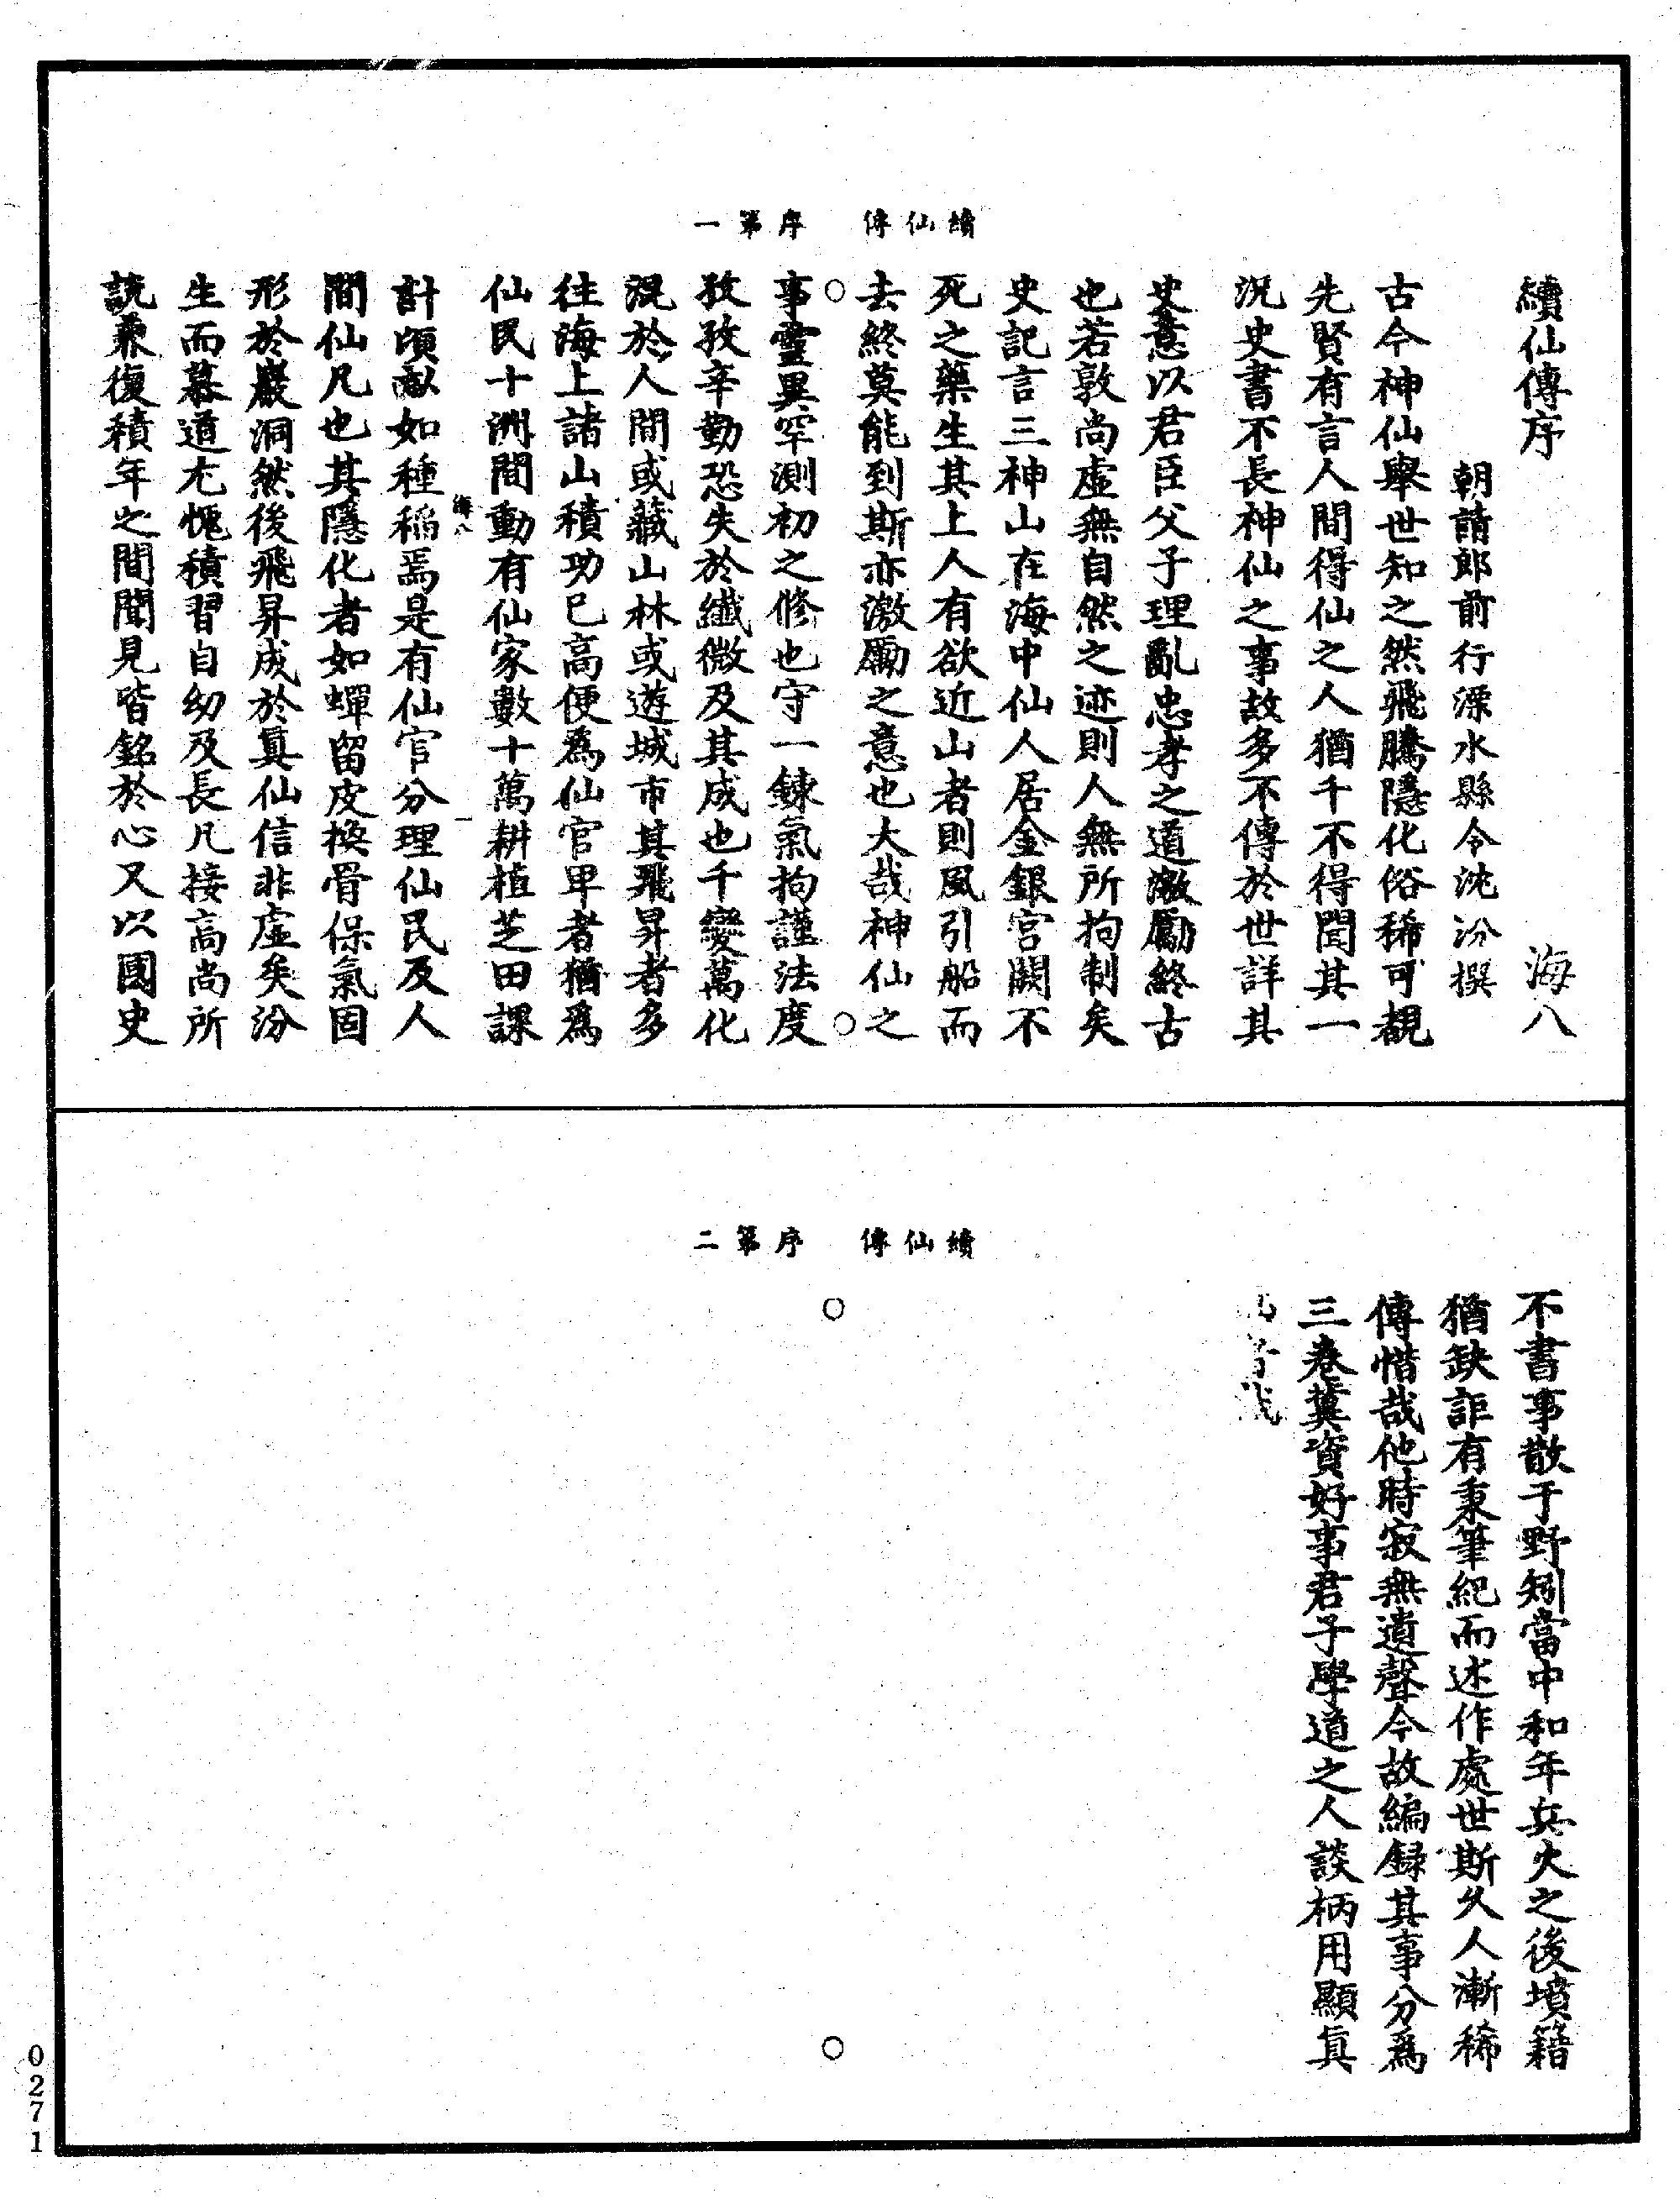 續仙傳　序第一
續仙傳序　海八
朝請郎前行溧水縣令沈汾撰
古今神仙舉世知之然飛騰隱化俗稀可覩
先賢有言人間得仙之人猶千不得聞其一
況史書不長神仙之事故多不傳於世詳其
史意以君臣父子理亂忠孝之道激勵終古
也若敦尚虛無自然之迹則人無所拘制矣
史記言三神山在海中仙人居金銀宮闕不
死之藥生其上人有欲近山者則風引船而
去終莫能到斯亦激勵之意也大哉神仙之
事靈異罕測初之修也守一鍊氣拘謹法度
孜孜辛勤恐失於纖微及其成也千變萬化
混於人間或藏山林或遊城市其飛昇者多
往海上諸山積功已高便爲仙官卑者猶爲
仙民十洲間動有仙家數十萬耕植芝田課
海八　一
計頃畝如種稻焉是有仙官分理仙民及人
間仙凡也其隱化者如蟬留皮換骨保氣固
形於巖洞然後飛昇成於眞仙信非虛矣汾
生而慕道尤愧積習自幼及長凡接高尚所
說兼復積年之間聞見皆銘於心又以國史
續仙傳　序第二
不書事散于野矧當中和年兵火之後墳籍
猶缺詎有秉筆紀而述作處世斯久人漸稀
傳惜哉他時寂無遺聲今故編錄其事分爲
三卷冀資好事君子學道之人談柄用顯眞
0271